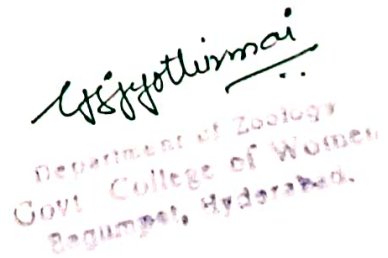 Department of Zoology
Govt College of Women
Begumpet, Hyderabad.